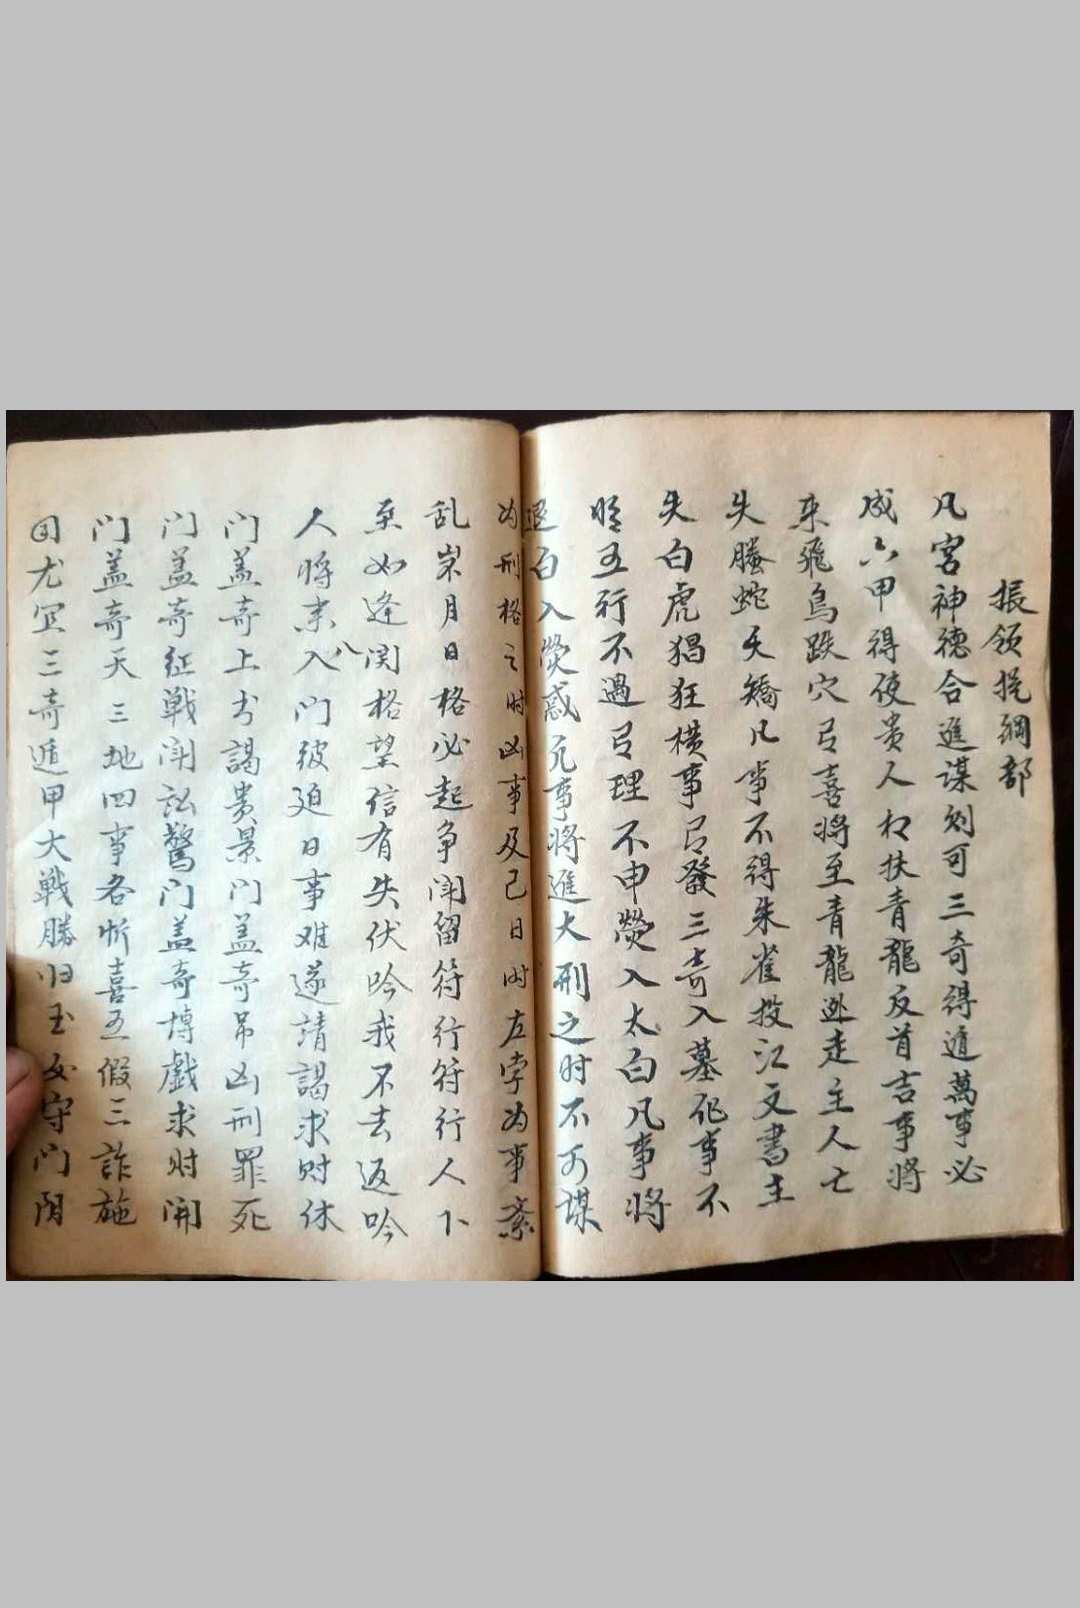 振领提綱部
凡宮神德合進谋则可三奇得遁萬事必
成六甲得使贵人相扶青龍反首吉事將
来飛鳥跌穴百喜將至青龍逃走主人亡
失螣蛇夭矯凡事不得朱雀投江文書主
失白虎猖狂横事百發三奇入墓化事不
明五行不遇百理不申熒入太白凡事將
退白入熒惑凡事將進大刑之时不可谋
为刑格之时凶事及己日时左孛为事紊
乱崇月日格必起争闹留符行符行人卜
至如逢関格望信有失伏吟我不去返吟
人將来入八门彼廹日事难遂請謁求财休
门盖奇上书謁贵景门盖奇吊凶刑罪死
门盖奇征戰闹訟驚门盖奇博戲求财開
门盖奇天三地四事各忻喜五假三詐施
因尤宜三奇遁甲大戰勝归玉女守门阴